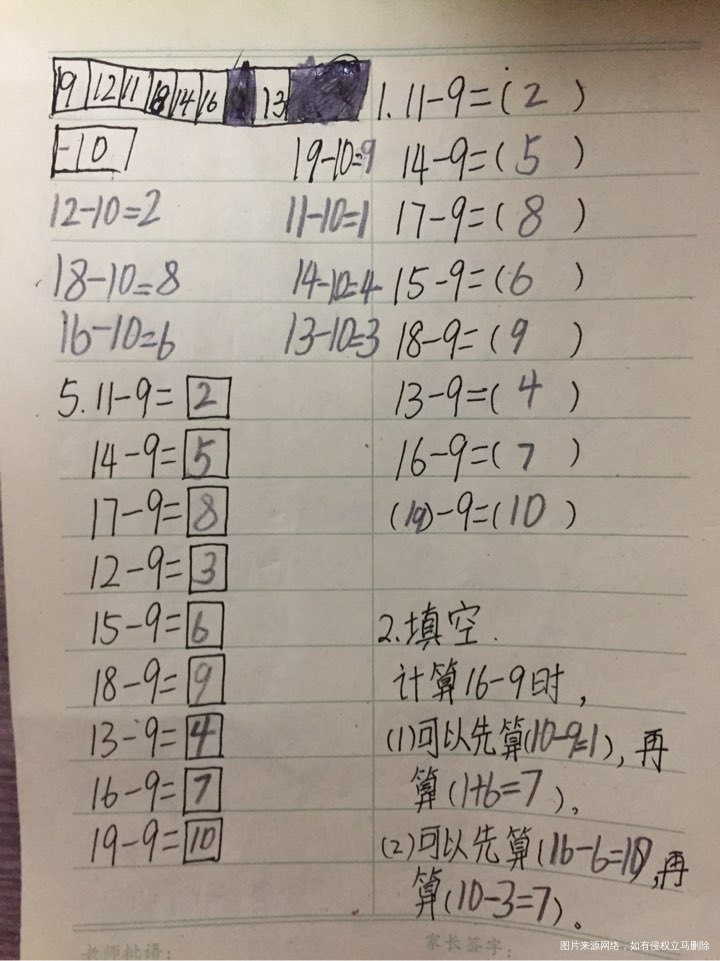 19 12 11 18 14 16 13
-10
19-10=9
12-10=2
11-10=1
18-10=8
14-10=4
16-10=6
13-10=3
5.11-9=2
14-9=5
17-9=8
12-9=3
15-9=6
18-9=9
13-9=4
16-9=7
19-9=10
1.11-9=(2)
14-9=(5)
17-9=(8)
15-9=(6)
18-9=(9)
13-9=(4)
16-9=(7)
(19)-9=(10)
2.填空.
计算16-9时,
(1)可以先算(10-9=1),再
算(1+6=7)。
(2)可以先算(16-6=10),再
算(10-3=7)。
老师批语:
家长签字:
图片来源网络，如有侵权立马删除